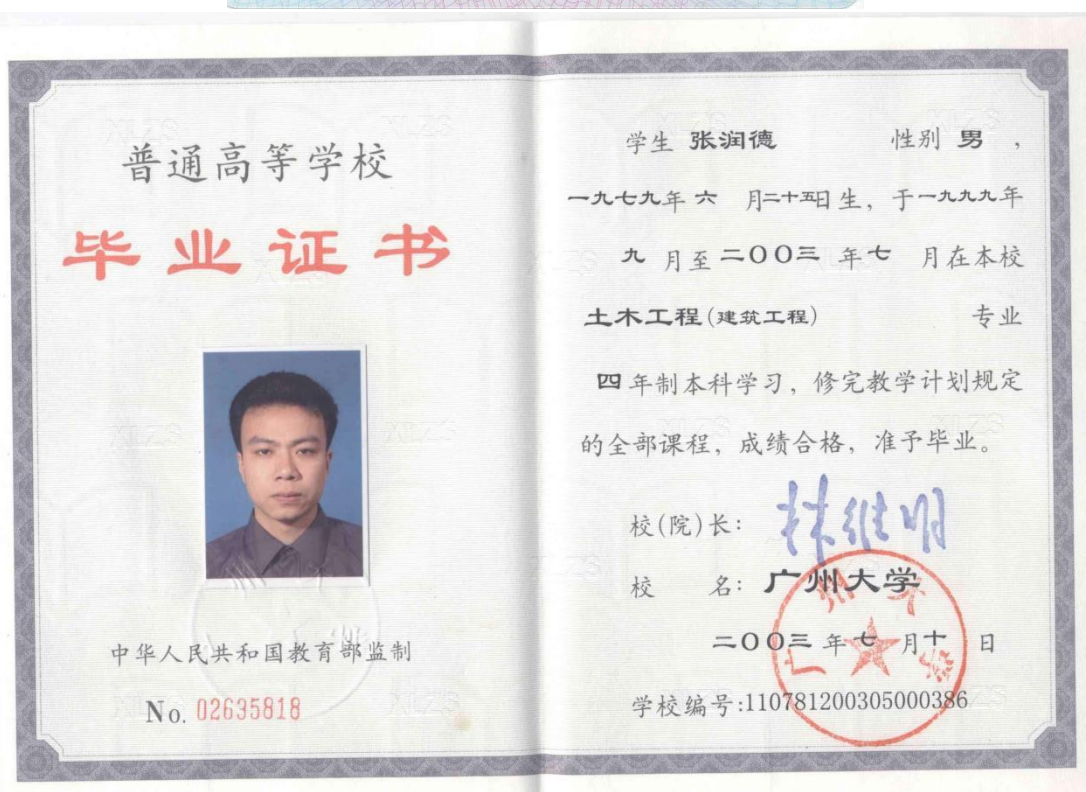 普通高等学校
毕业证书
中华人民共和国教育部监制
No. 02635818
学生 张润德 性别 男 ,
一九七九年 六 月二十五日生, 于一九九九年
九 月至 二〇〇三 年 七 月在本校
土木工程(建筑工程) 专业
四 年制本科学习, 修完教学计划规定
的全部课程, 成绩合格, 准予毕业。
校(院)长: 林维明
校 名: 广州大学
二〇〇三 年 七 月 十 日
学校编号:110781200305000386
广州大学